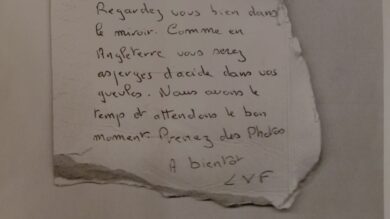 Regardez vous bien dans
le miroir. Comme en
Angleterre vous serez
asperges d'acide dans vos
gueules. Nous avons le
temps et attendons le bon
moment. Prenez des Photos
A bientot
LVF